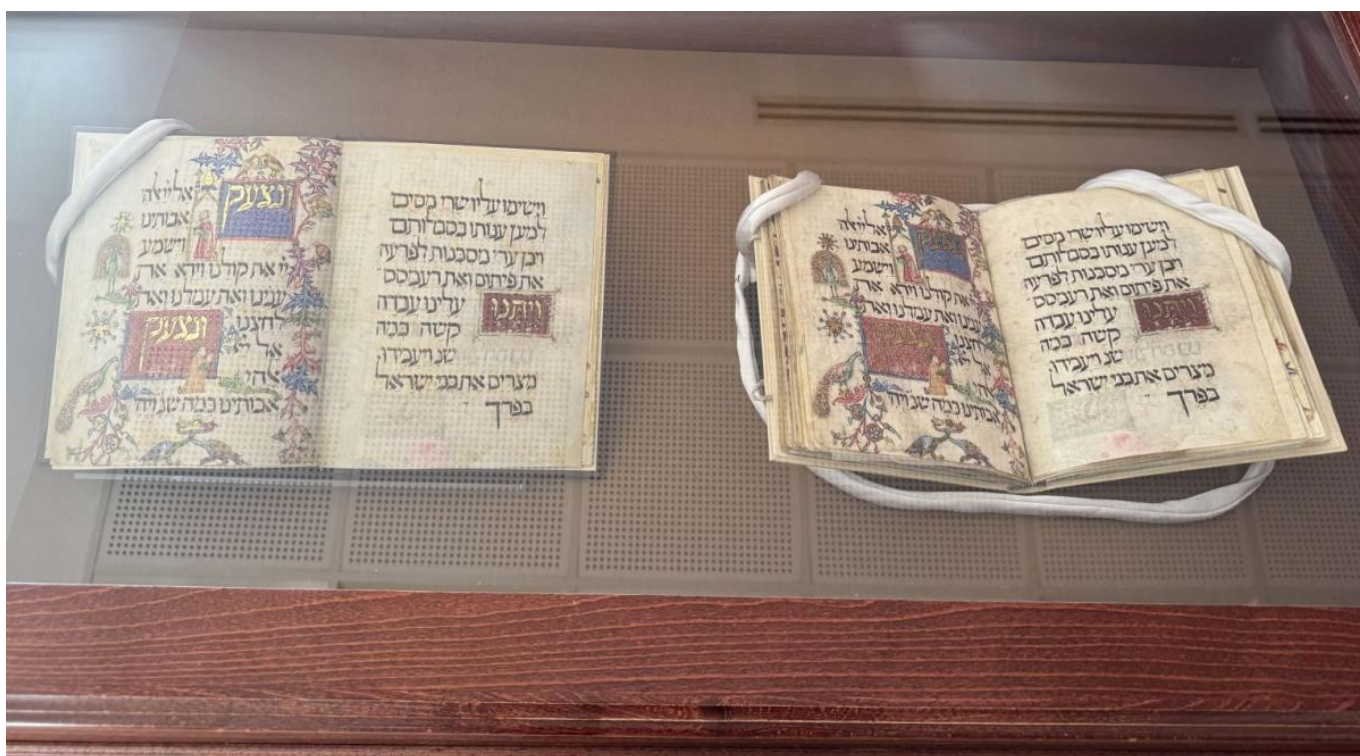 וישימו עליו שרי מסים
למען ענותו בסבלותם
ויבן ערי מסכנות לפרעה
את פיתום ואת רעמסס
ויתנו עלינו עבדה
קשה כמה
שנ ויעבידו
מצרים את בני ישראל
בפרך
ונצעק אל ייאלהי
אבותינו
וישמע
יי את קולנו וירא את
ענינו ואת עמלנו ואת
לחצנו
ונצעק אל יי
אלהי
אבותינו כמה שנ ויהי
וישימו עליו שרי מסים
למען ענותו בסבלותם
ויבן ערי מסכנות לפרעה
את פיתום ואת רעמסס
ויתנו עלינו עבדה
קשה כמה
שנ ויעבידו
מצרים את בני ישראל
בפרך
ונצעק אל ייאלהי
אבותינו
וישמע
יי את קולנו וירא את
ענינו ואת עמלנו ואת
לחצנו
ונצעק אל יי
אלהי
אבותינו כמה שנ ויהי